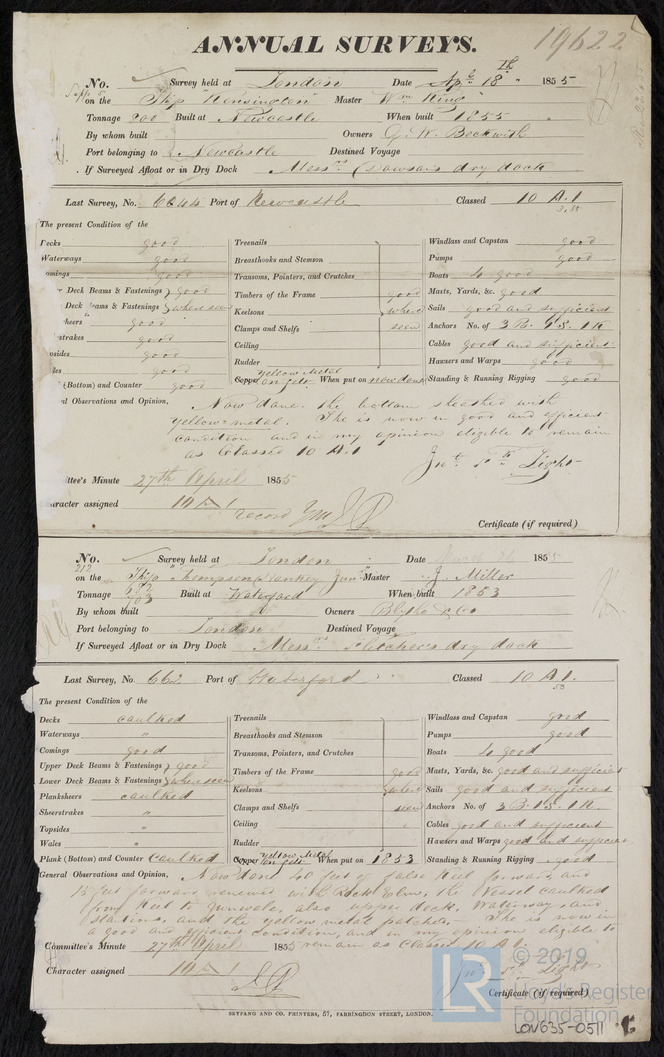 ANNUAL SURVEYS.
19622
No. Survey held at London Date Ap. 18th 1855
on the Ship "Kensington" Master Wm King
Tonnage 800 Built at Newcastle When built 1855
By whom built Owners G. W. Beckwith
Port belonging to Newcastle Destined Voyage
If Surveyed Afloat or in Dry Dock Messrs Dawson's dry dock
Last Survey, No. 6644 Port of Newcastle Classed 10 A.1
3,55
The present Condition of the
Decks good
Waterways good
omings good
r Deck Beams & Fastenings } good
Deck Beams & Fastenings } where seen
heers good
strakes good
osides good
les good
(Bottom) and Counter good
Treenails
Breasthooks and Stemson
Transoms, Pointers, and Crutches
Timbers of the Frame good
Keelsons where
Clamps and Shelfs seen
Ceiling
Rudder
Copper Yellow Metal on felt When put on now done
Windlass and Capstan good
Pumps good
Boats 4 good
Masts, Yards, &c. good
Sails good and sufficient
Anchors No. of 3 B. 1 S. 1 K
Cables good and sufficient
Hawsers and Warps good
Standing & Running Rigging good
al Observations and Opinion, Now done the bottom sheathed with
yellow metal. She is now in good and efficient
condition and in my opinion eligible to remain
as Classed 10 A.1
Light
ttee's Minute 27th April 1855
aracter assigned 10 A 1
record YM
Certificate (if required)
No. Survey held at London Date 1855
212
on the Ship "Thompson Hankey Junr" Master J. Miller
Tonnage 682 703 Built at Waterford When built 1853
By whom built Owners Blythe & Co
Port belonging to London Destined Voyage
If Surveyed Afloat or in Dry Dock Messrs Fletcher's dry dock
Last Survey, No. 662 Port of Waterford Classed 10 A.1.
53
The present Condition of the
Decks caulked
Waterways "
Comings good
Upper Deck Beams & Fastenings } good
Lower Deck Beams & Fastenings } where seen
Planksheers caulked
Sheerstrakes "
Topsides "
Wales "
Plank (Bottom) and Counter Caulked
Treenails
Breasthooks and Stemson
Transoms, Pointers, and Crutches
Timbers of the Frame good
Keelsons where
Clamps and Shelfs seen
Ceiling
Rudder
Copper Yellow Metal on felt When put on 1853
Windlass and Capstan good
Pumps good
Boats 4 good
Masts, Yards, &c. good and sufficient
Sails good and sufficient
Anchors No. of 3 B. 1 S. 1 K.
Cables good and sufficient
Hawsers and Warps good and sufficien
Standing & Running Rigging good
General Observations and Opinion, Now done 40 feet of false Keel forward, and
15 feet forward renewed with Rock Elm, the Vessel caulked
from Keel to Gunwale, also upper deck, Waterway, and
stantions, and the yellow metal patched. She is now in
a good and efficient condition, and in my opinion eligible to
remain as Classed 10 A.1.
Committee's Minute 27th April 1855
Character assigned 10 A 1
Light
Certificate (if required)
SEYFANG AND CO. PRINTERS, 57, FARRINGDON STREET, LONDON.
LR
© 2019
Lloyd's Register
Foundation
LON635-0511